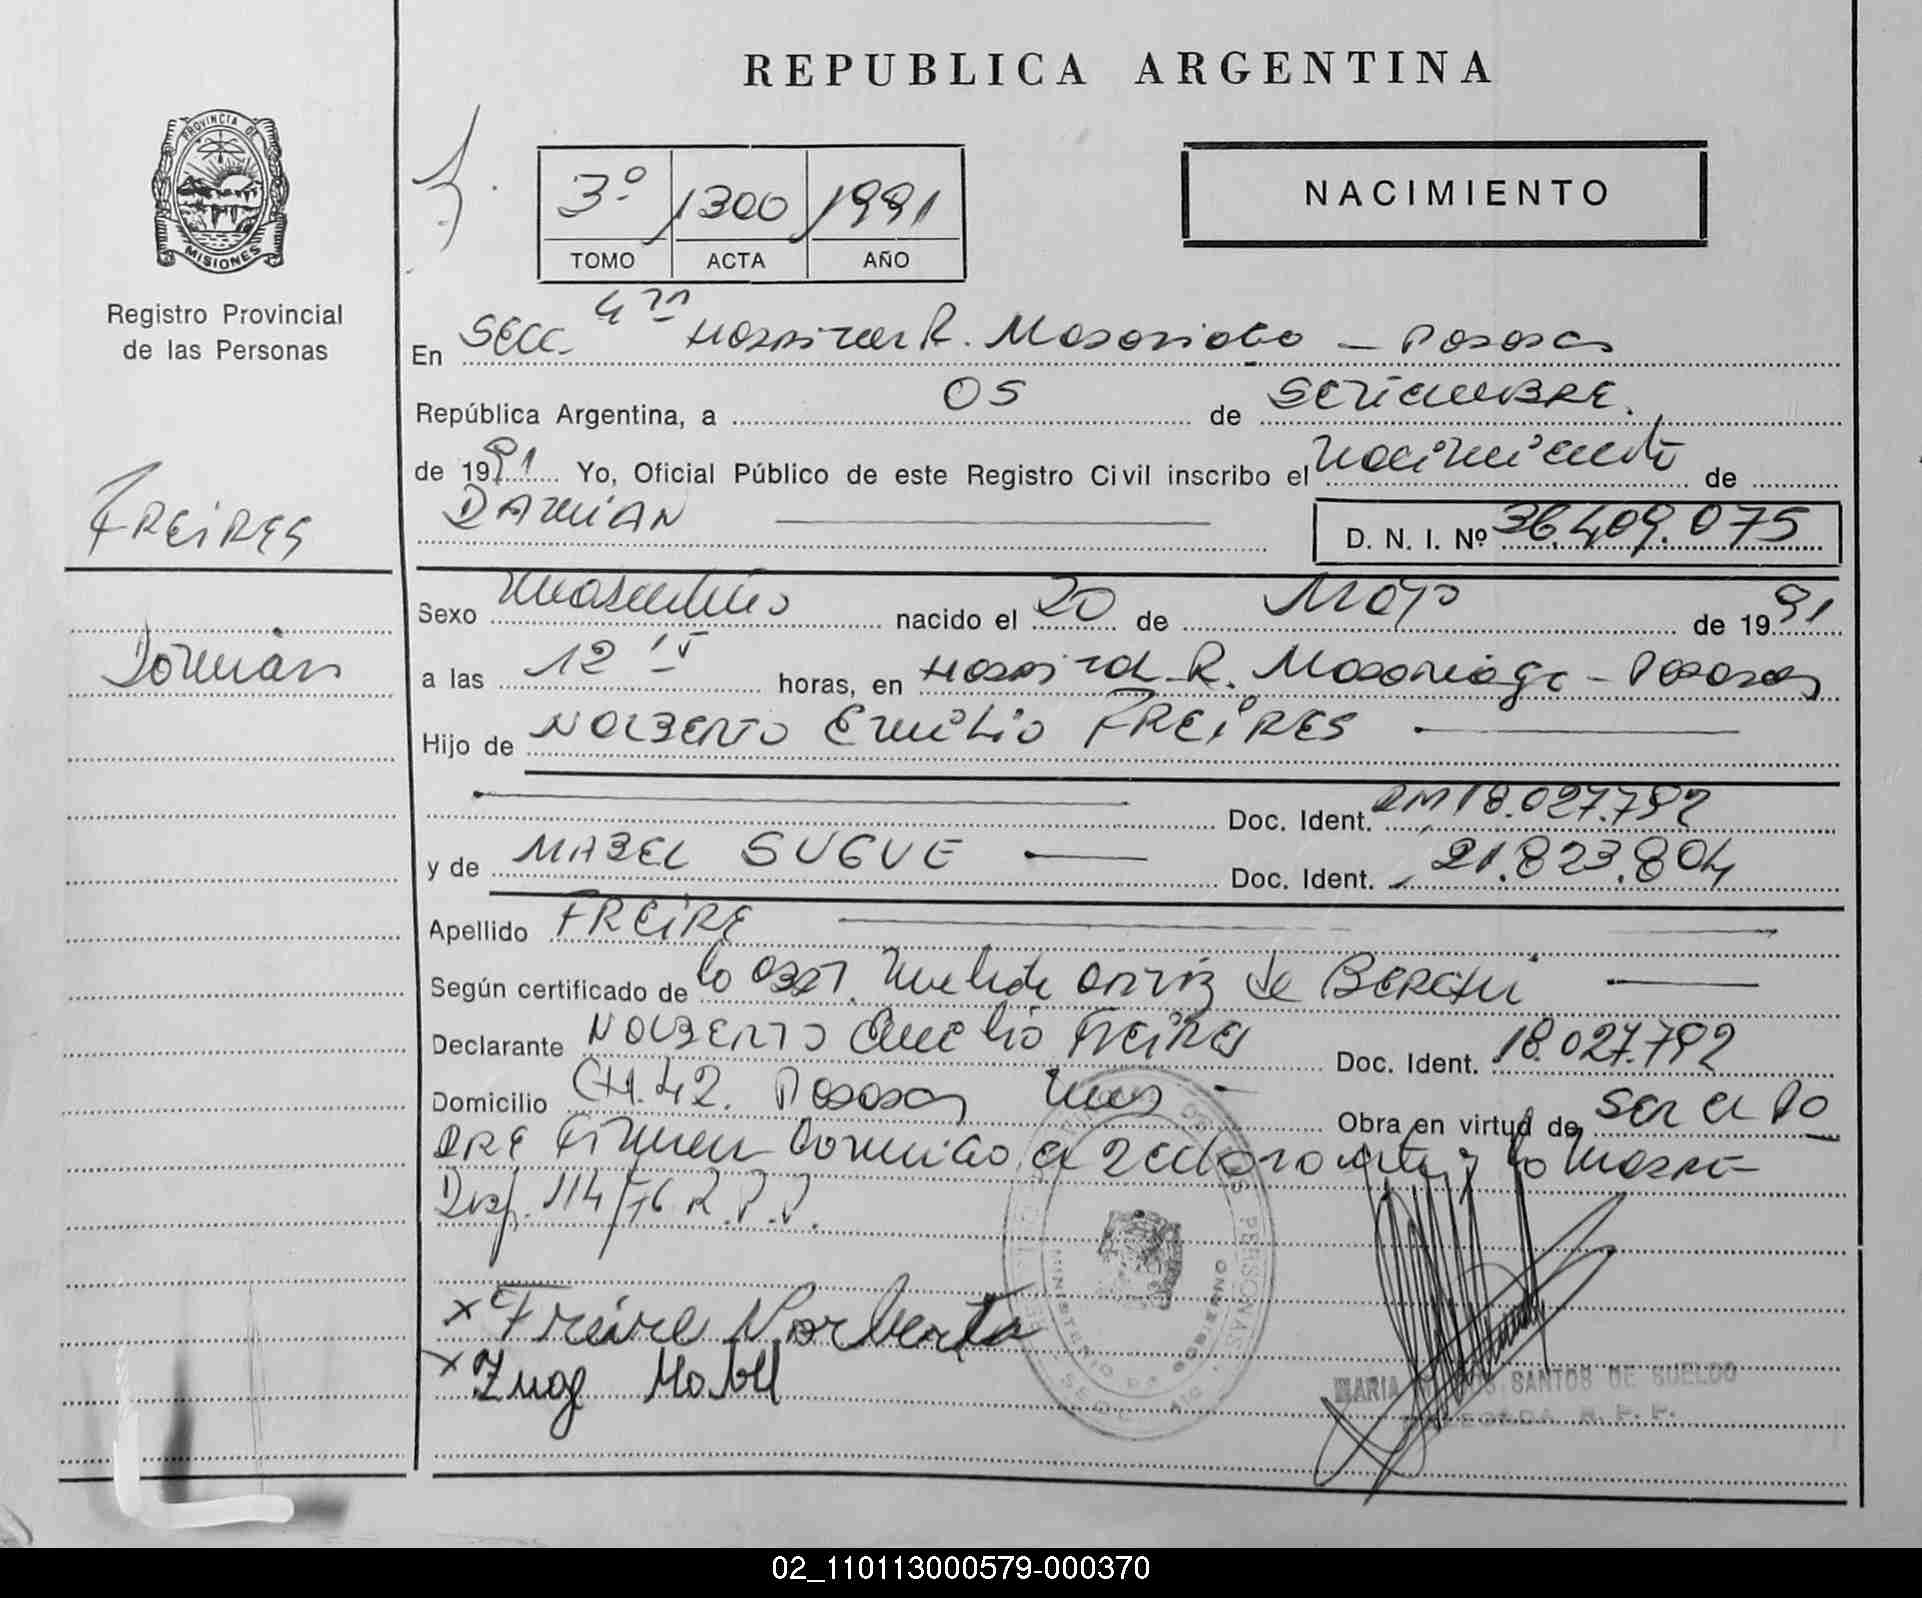 REPUBLICA ARGENTINA
PROVINCIA DE
MISIONES
Registro Provincial
de las Personas
3º 1300 1991
TOMO ACTA AÑO
NACIMIENTO
En SECC. 4ta Hospital R. Madariaga - Posadas
República Argentina, a 05 de SETIEMBRE.
de 1991 Yo, Oficial Público de este Registro Civil inscribo el nacimiento de
DAMIAN D. N. I. Nº 36.409.075
FREIRES
Damián
Sexo masculino nacido el 20 de Mayo de 1991
a las 12 15 horas, en Hospital R. Madariaga - Posadas
Hijo de NOLBERTO Emilio FREIRES
Doc. Ident. DNI 18.027.792
y de MABEL SUGUE Doc. Ident. 21.823.804
Apellido FREIRE
Según certificado de la Obst. de
Declarante NOLBERTO Emelio FREIRES Doc. Ident. 18.027.792
Domicilio CH. 42. Posadas Mnes - Obra en virtud de ser el PA
DRE Firman conmigo el declarante y la madre
Disp. 114/76 R.P.P.
x Freire Norberto
x Zuge Mabel
MINISTERIO DE GOBIERNO
PERSONAS
MARIA SANTOS DE SUELDO
DELEGADA R. P. P.
02_110113000579-000370